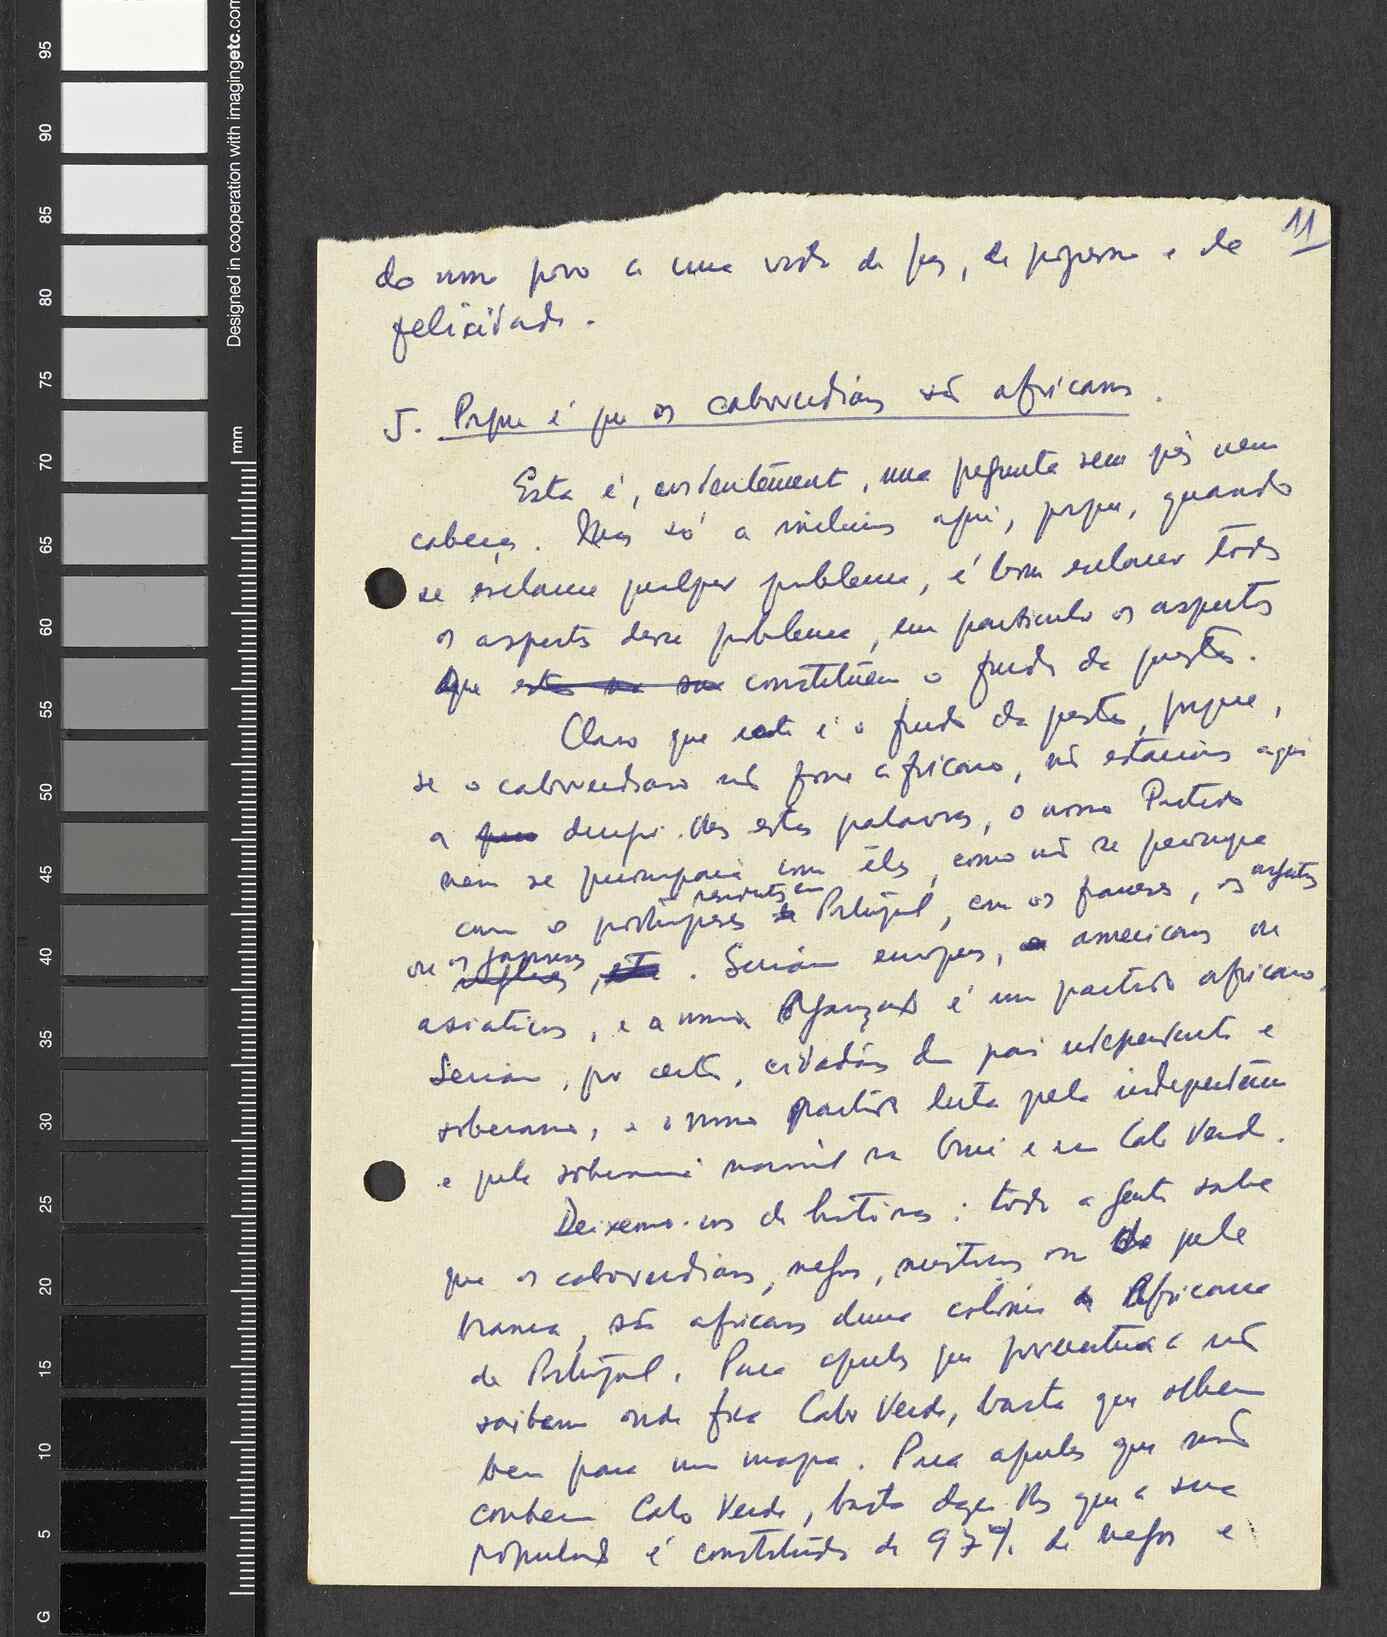 11
do nosso povo a uma vida de paz, de progresso e de
felicidade.
5. Porque é que os caboverdianos são africanos.
Esta é, evidentemente, uma pergunta sem pés nem
cabeça. Mas só a incluimos aqui, porque, quando
se esclarece qualquer problema, é bom esclarecer todos
os aspectos desse problema, em particular os aspectos
que constituem o fundo da questão.
Claro que este é o fundo da questão, porque,
se o caboverdiano não fosse africano, não estaríamos aqui
a dirigir-lhes estas palavras, o nosso Partido
nem se preocuparia com êles, como não se preocupa
com os portugueses residentes em Portugal, com os franceses, os
ou os japoneses. Seriam europeus, americanos ou
asiáticos, e a nossa Organização é um partido africano.
Seriam, por certo, cidadãos dum país independente e
soberano, e o nosso partido luta pela independência
e pela soberania nacional na Guiné e em Cabo Verde.
Deixemo-nos de histórias: toda a gente sabe
que os caboverdianos, negros, mestiços ou de pele
branca, são africanos duma colónia Africana
de Portugal. Para aqueles que porventura não
saibam onde fica Cabo Verde, basta que olhem
bem para um mapa. Para aqueles que não
conhecem Cabo Verde, basta dizer-lhes que a sua
população é constituída de 97% de negros e
95
90
85
80
75
70
65
60
55
50
45
40
35
30
25
20
15
10
5
G
mm
Designed in cooperation with imagingetc.com